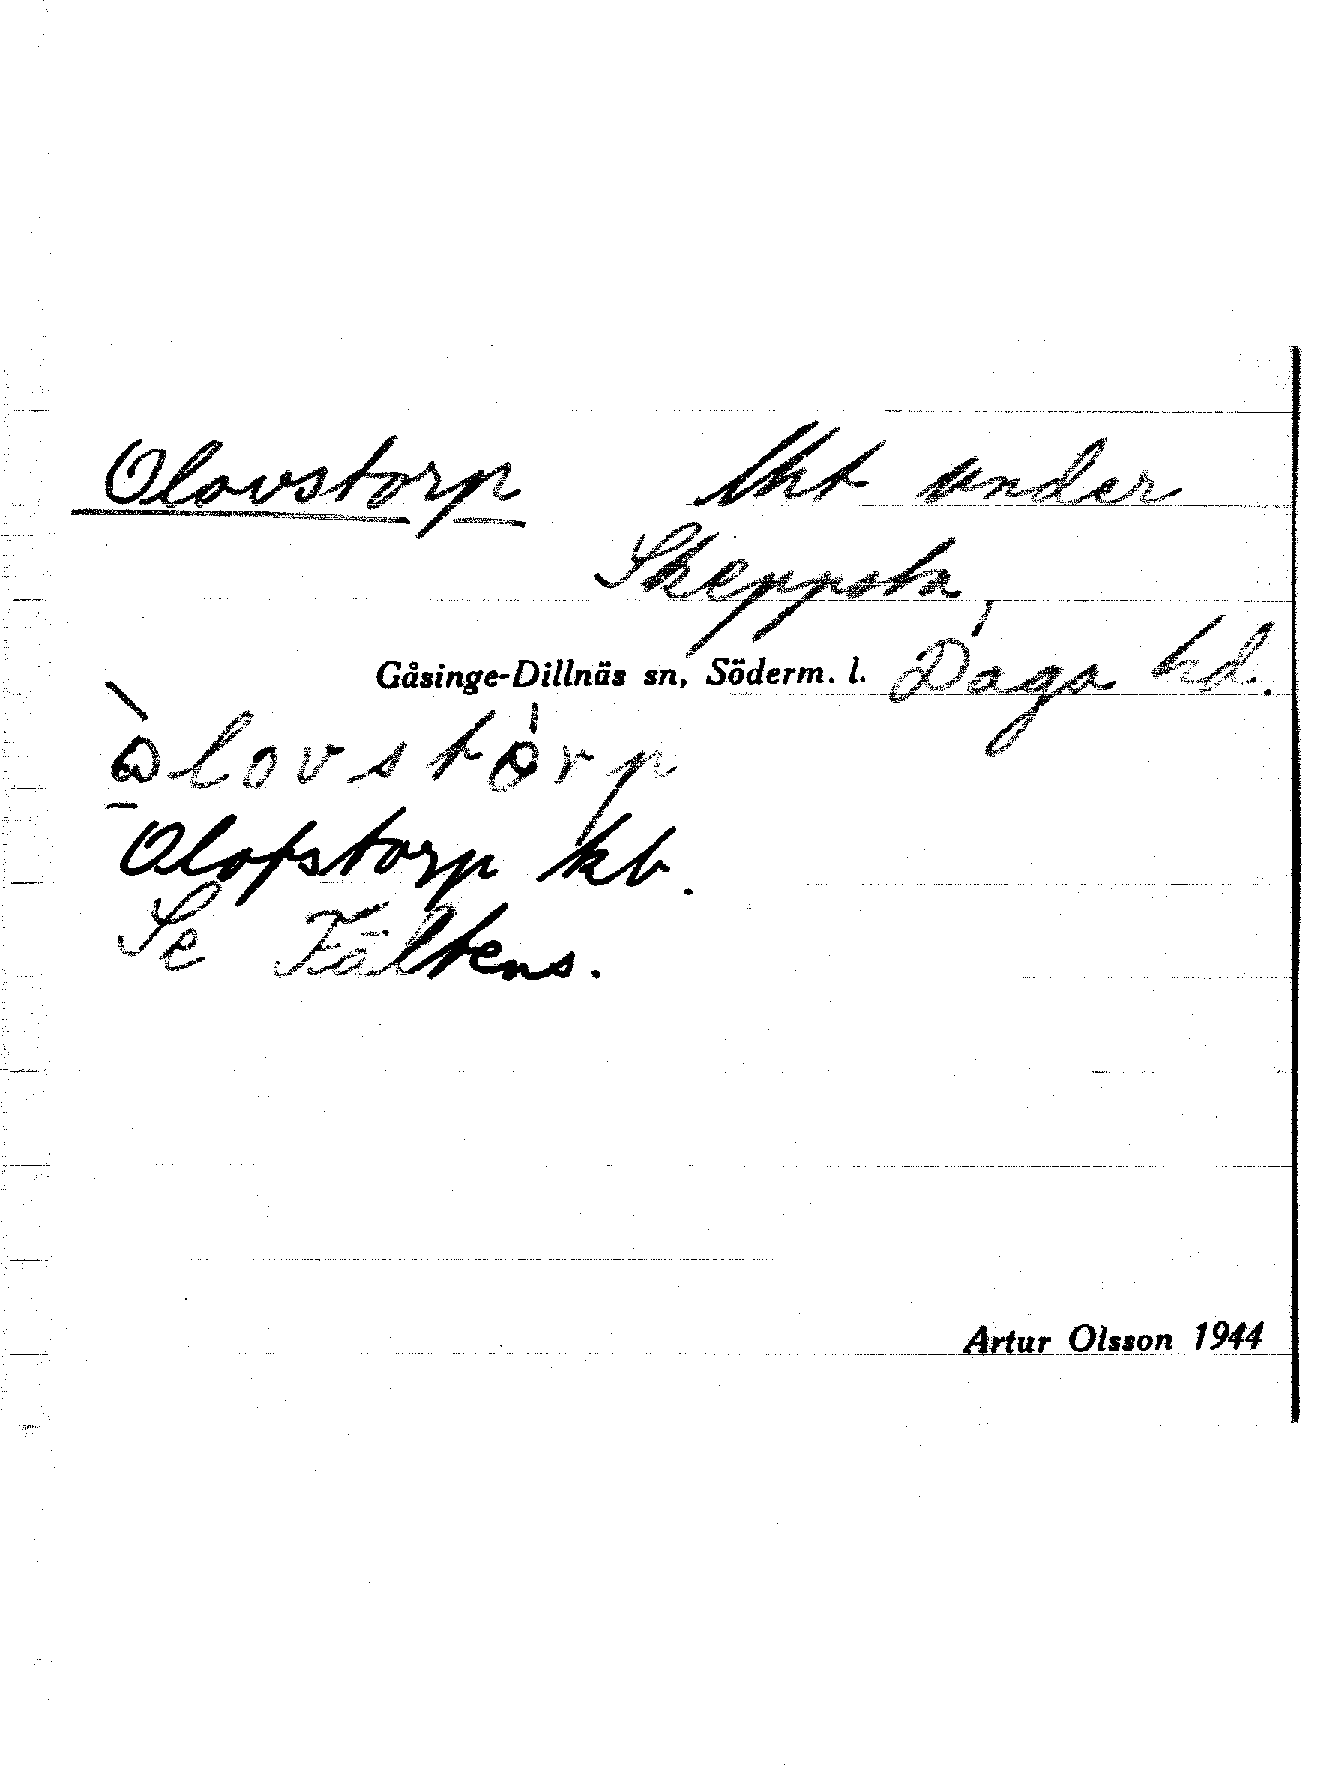 Olovstorp lht under
Skeppsta,
Gåsinge-Dillnäs sn, Söderm. l. Daga hd.
òlovstórp
Olofstorp kb.
Se Fältens.
Artur Olsson 1944